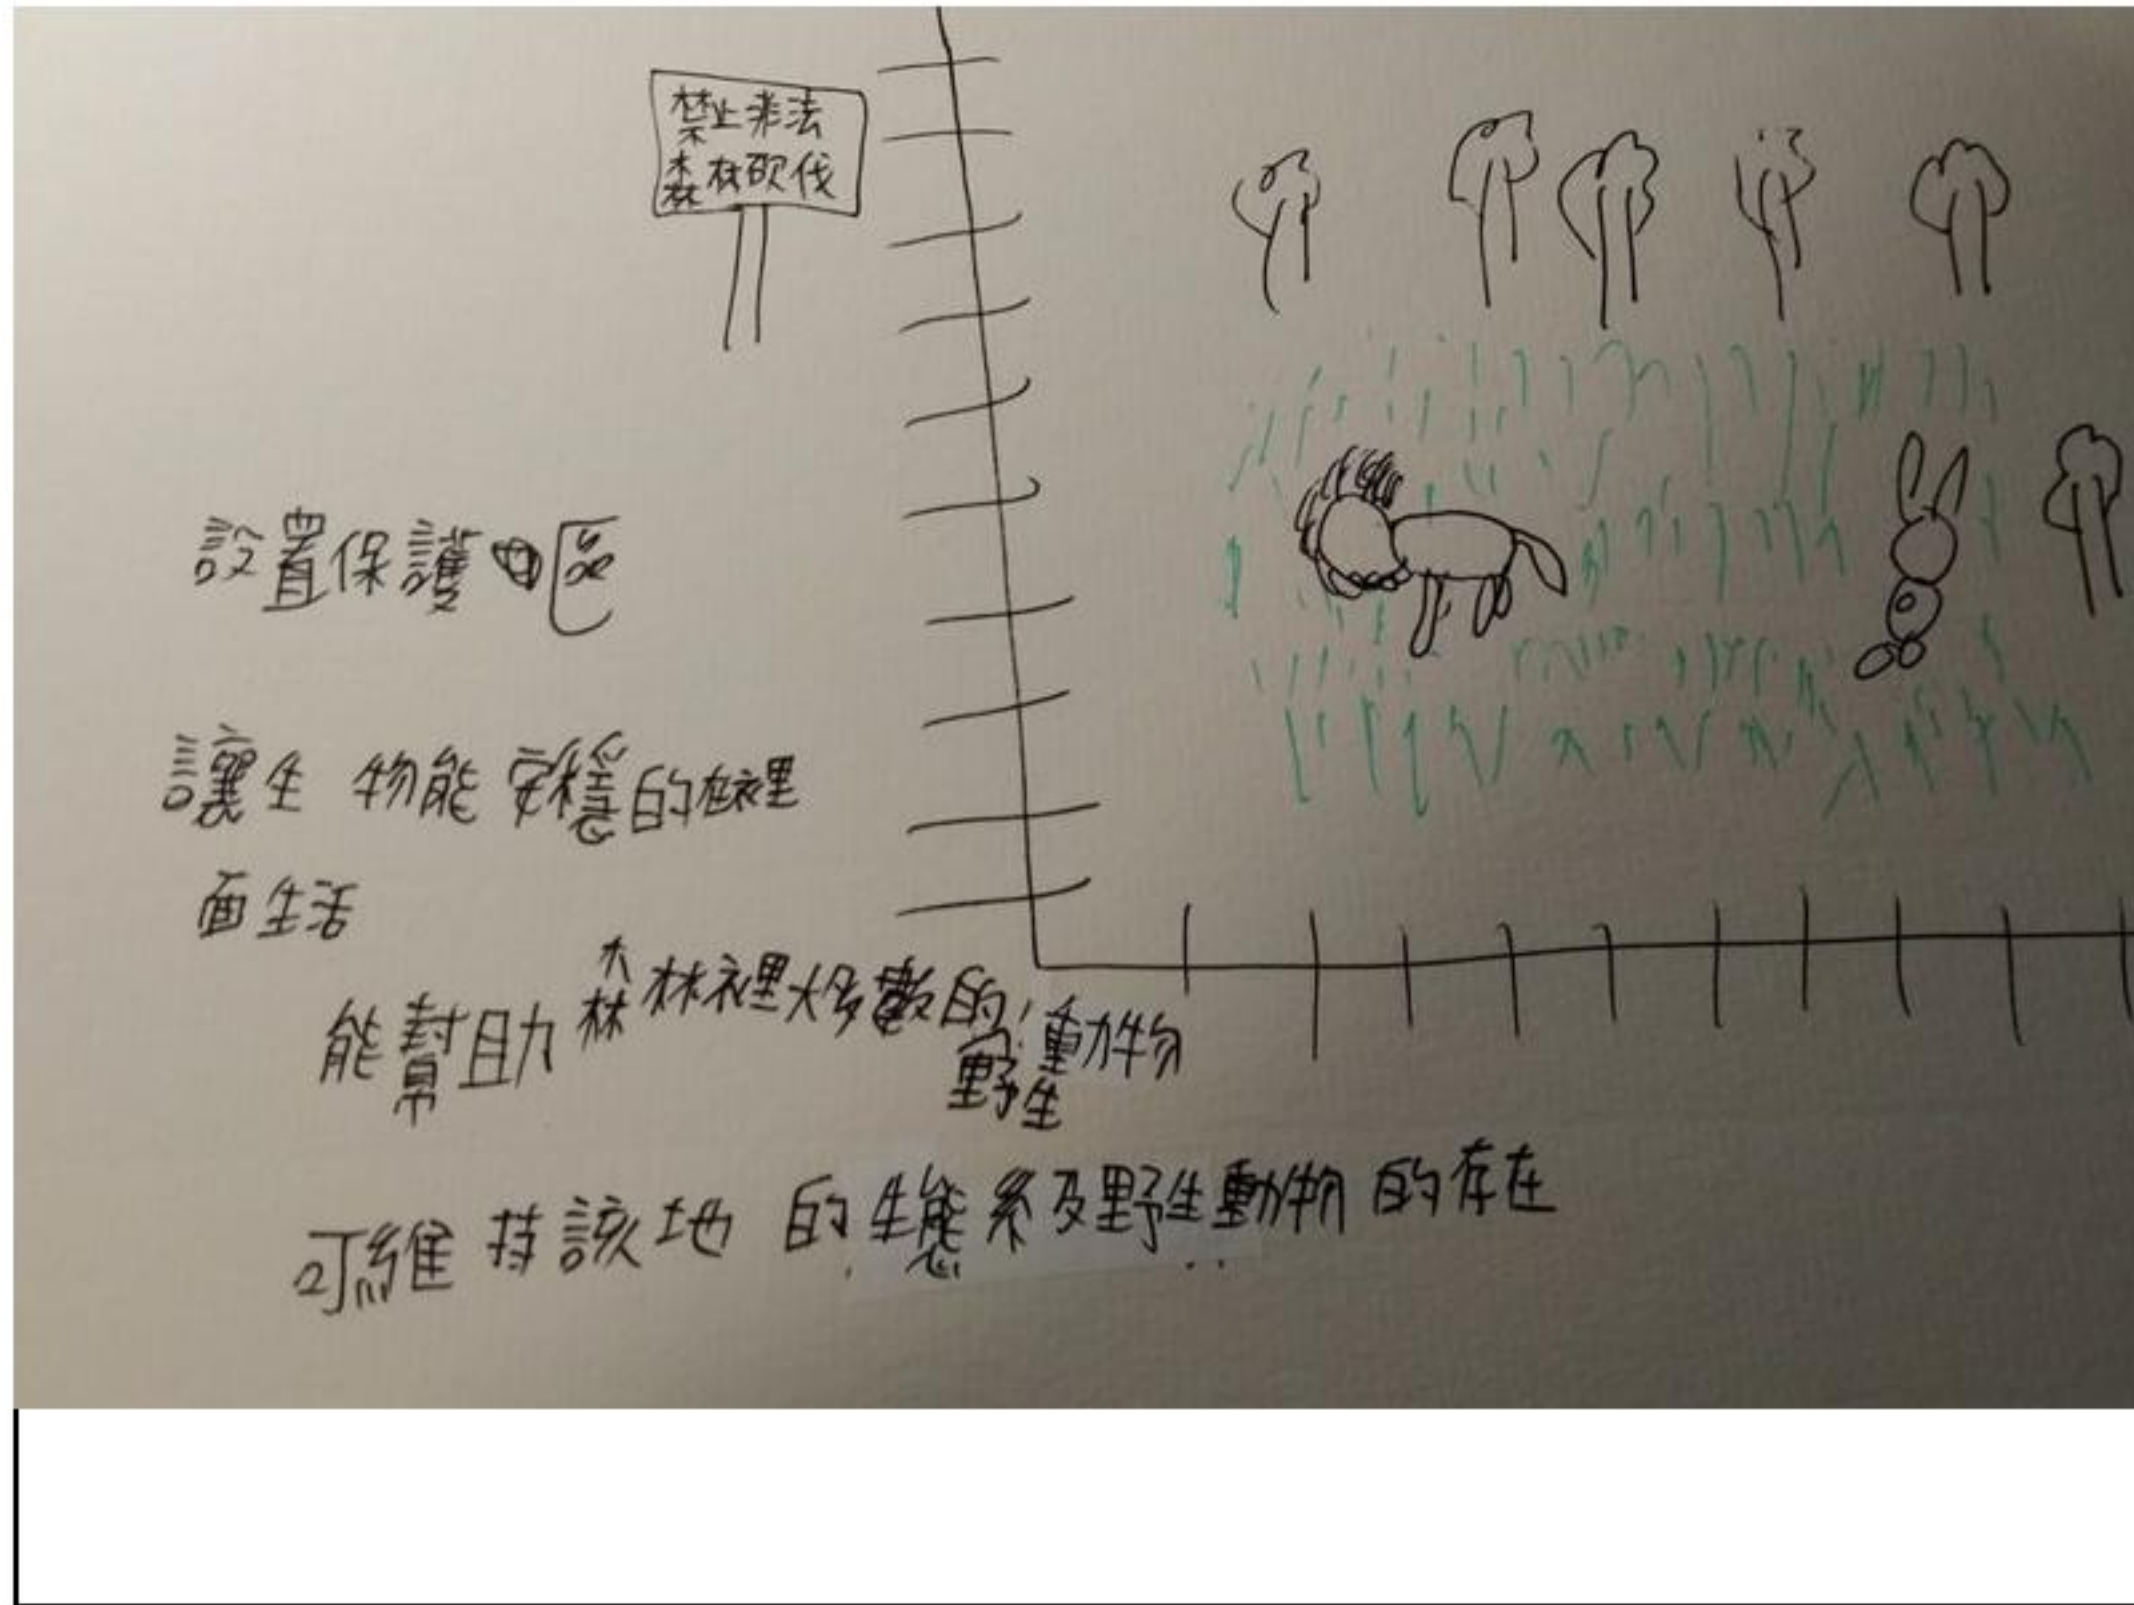 禁止非法
森林砍伐
設置保護區
讓生物能安穩的在裡
面生活
能幫助森林裡大多數的野生動物
可維持該地的生態系及野生動物的存在